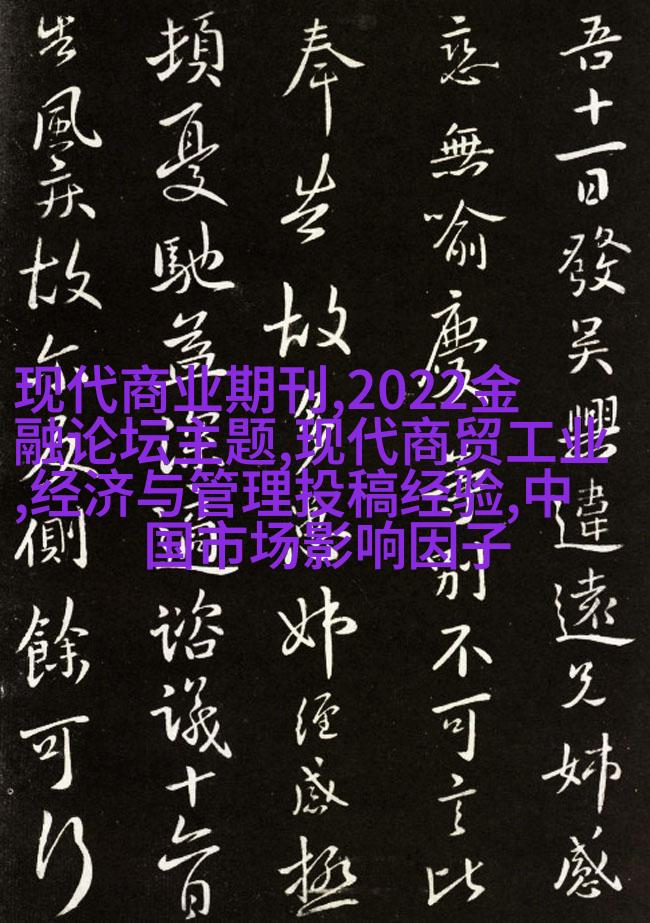 现代商业期刊,2022金
融论坛主题,现代商贸工业
,经济与管理投稿经验,中
国市场影响因子
吾十一日發吳興違遠兄姊感
戀無喻慶別不可言比
奉告故姊經感極
頓憂馳益深諮議十六日
告風疾故尔側餘可行